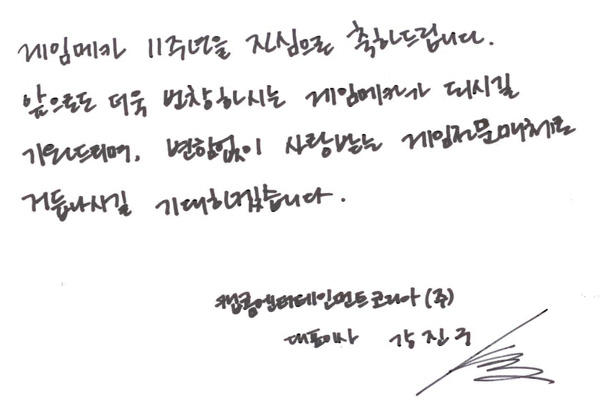 게임메카 11주년을 진심으로 축하드립니다.
앞으로도 더욱 번창하시는 게임메카가 되시길
기원드리며, 변함없이 사랑받는 게임전문매체로
거듭나시길 기대하겠습니다.
캡콤엔터테인먼트코리아(주)
대표이사 강진구